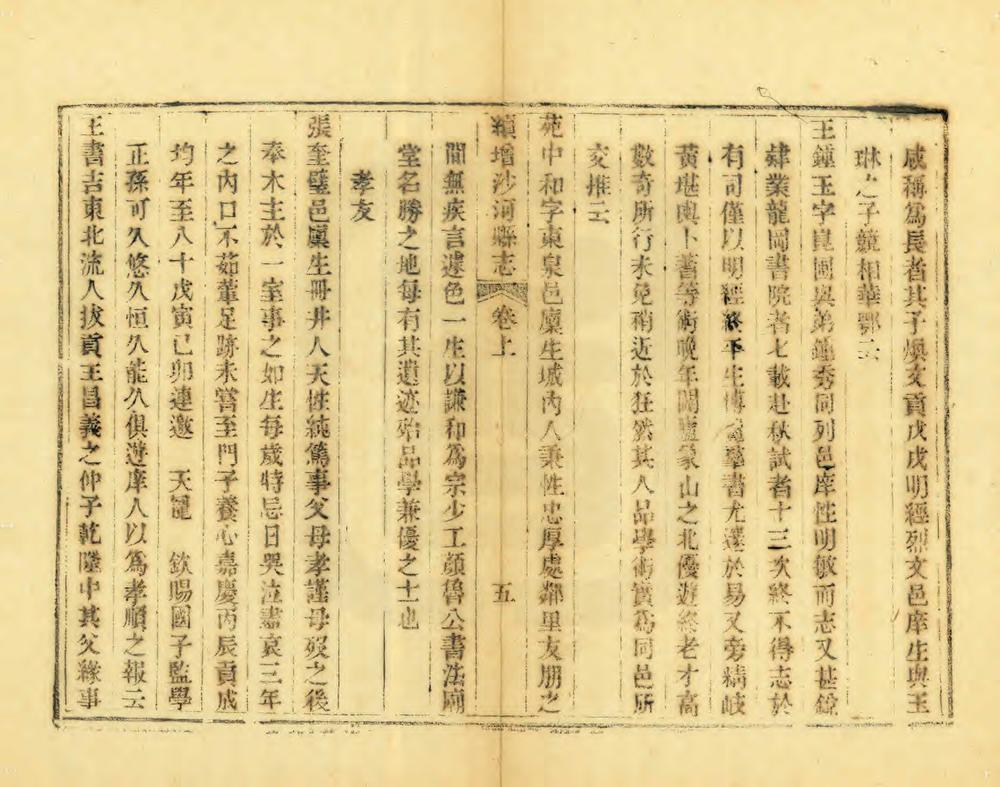 咸稱爲長者其子煥文貢戊戌明經烈文邑庠生與王
琳之子競相華鄂云
王鐘玉字崑圃與弟鐘秀同列邑庠性明敏而志又甚銳
肄業龍岡書院者七載赴秋試者十三次終不得志於
有司僅以明經終平生博覽羣書尤邃於易又旁精岐
黃堪輿卜蓍等術晚年閒廬象山之北優遊終老才高
數奇所行未免稍近於狂然其人品學術實爲同邑所
交推云
苑中和字東泉邑廩生城內人秉性忠厚處鄰里友朋之
續增沙河縣志 卷上 五
間無疾言遽色一生以謙和爲宗少工顏魯公書法廟
堂名勝之地每有其遺迹殆品學兼優之士也
孝友
張奎璧邑廩生冊井人天性純篤事父母孝謹母歿之後
奉木主於一室事之如生每歲時忌日哭泣盡哀三年
之內口不茹葷足跡未嘗至門子養心嘉慶丙辰貢成
均年至八十戊寅己卯連邀 天寵 欽賜國子監學
正孫可久悠久恒久能久俱遊庠人以爲孝順之報云
王書吉東北流人拔貢王昌義之仲子乾隆中其父緣事